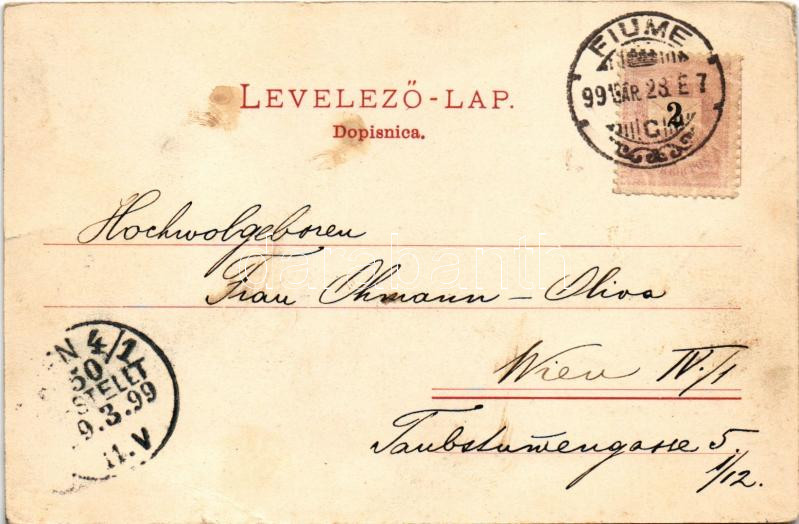 FIUME
99 MÁR. 28. E 7
C
2
LEVELEZŐ-LAP.
Dopisnica.
Hochwolgeboren
Frau Ohmann – Oliva
Wien IV/1
Taubstum̄engasse 5.
1/12.
EN 4/1
50
STELLT
9.3.99
11.V
darabanth